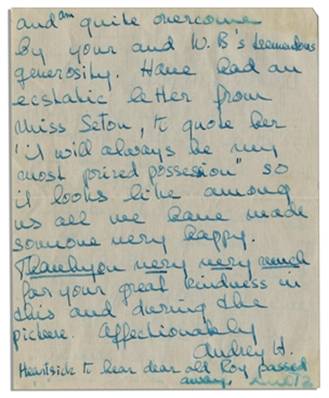 and am quite overcome
by your and W.B's tremendous
generosity. Have had an
ecstatic letter from
Miss Seton, to quote her
"it will always be my
most prized possession" so
it looks like among
us all we have made
someone very happy.
Thankyou very very much
for your great kindness in
this and during the
picture. Affectionately
Audrey H.
Heartsick to hear dear old Roy passed
away.